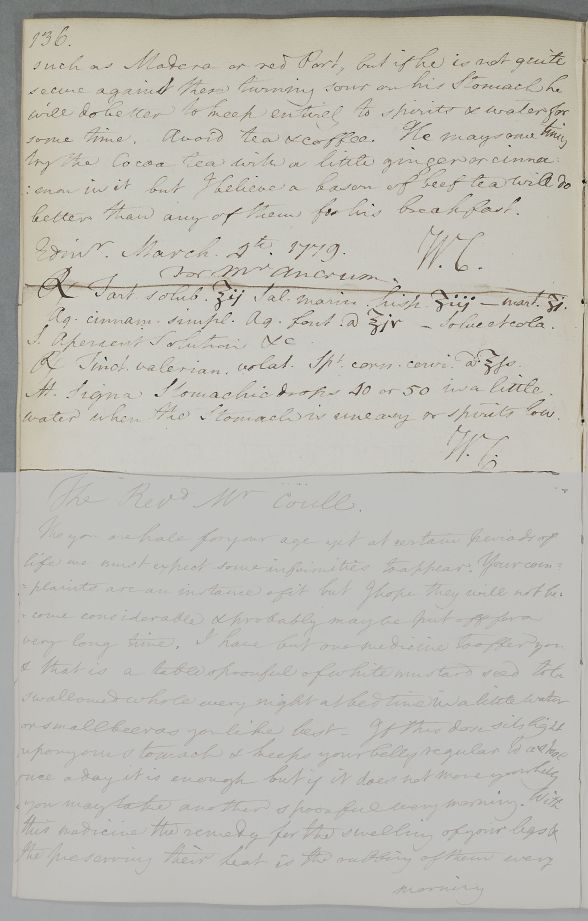 136.
such as Madera or red Port, but if he is not quite
secure against them turning sour on his Stomach he
will do better to keep entirely to spirits & water for
some time. Avoid tea & coffee. He may some times
try the Cocoa tea with a little ginger or cinna:
:mon in it but I believe a bason of beef tea will do
better than any of them for his breakfast.
Edinr. March. 4th. 1779. W.C.
For Mr Ancrum.
℞ Tart. solub. ʒij Sal. marin. hisp. ʒiij — mart. ʒi.
Aq. cinnam. simpl. Aq. font. a ʒiv — solve et cola.
S. Aperient Solution &c
℞ Tinct. valerian. volat. Spt. corn. cervi. a ʒſs.
M. Signa Stomachic drops 40 or 50 in a little
water when the Stomach is uneasy or spirits low.
W.C.
The Revd Mr Coull.
Tho you are hale for your age yet at certain periods of
life we must expect some infirmities to appear. Your com:
:plaints are an instance of it but I hope they will not be:
:come considerable & probably may be put off for a
very long time. I have but one medicine to offer you
& that is a table spoonful of white mustard seed to be
swallowed whole every night at bed time in a little water
or small beer as you like best — If this dose sits light
upon your stomach & keeps your belly regular to a stool
once a day it is enough but if it does not move your belly
you may take another spoonful every morning. With
this medicine the remedy for the swelling of your legs &
the preserving their heat is the rubbing of them every
morning